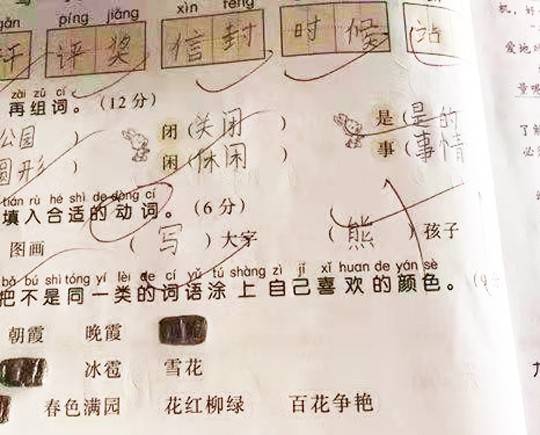 píng jiǎng xìn fēng
评 评 奖 信 封 时 候 站
机,好
爱地
zài zǔ cí
再组词。(12分)
量吸
公园 闭(关闭) 是(是的
了解
圆形) 闲(休闲) 事(事情
必须
tián rù hé shì de dòng cí
填入合适的动词。(6分)
图画 (写)大字 (熊)孩子
bǎ bú shì tóng yí lèi de cí yǔ tú shàng zì jǐ xǐ huan de yán sè
把不是同一类的词语涂上自己喜欢的颜色。(
朝霞 晚霞
冰雹 雪花
春色满园 花红柳绿 百花争艳